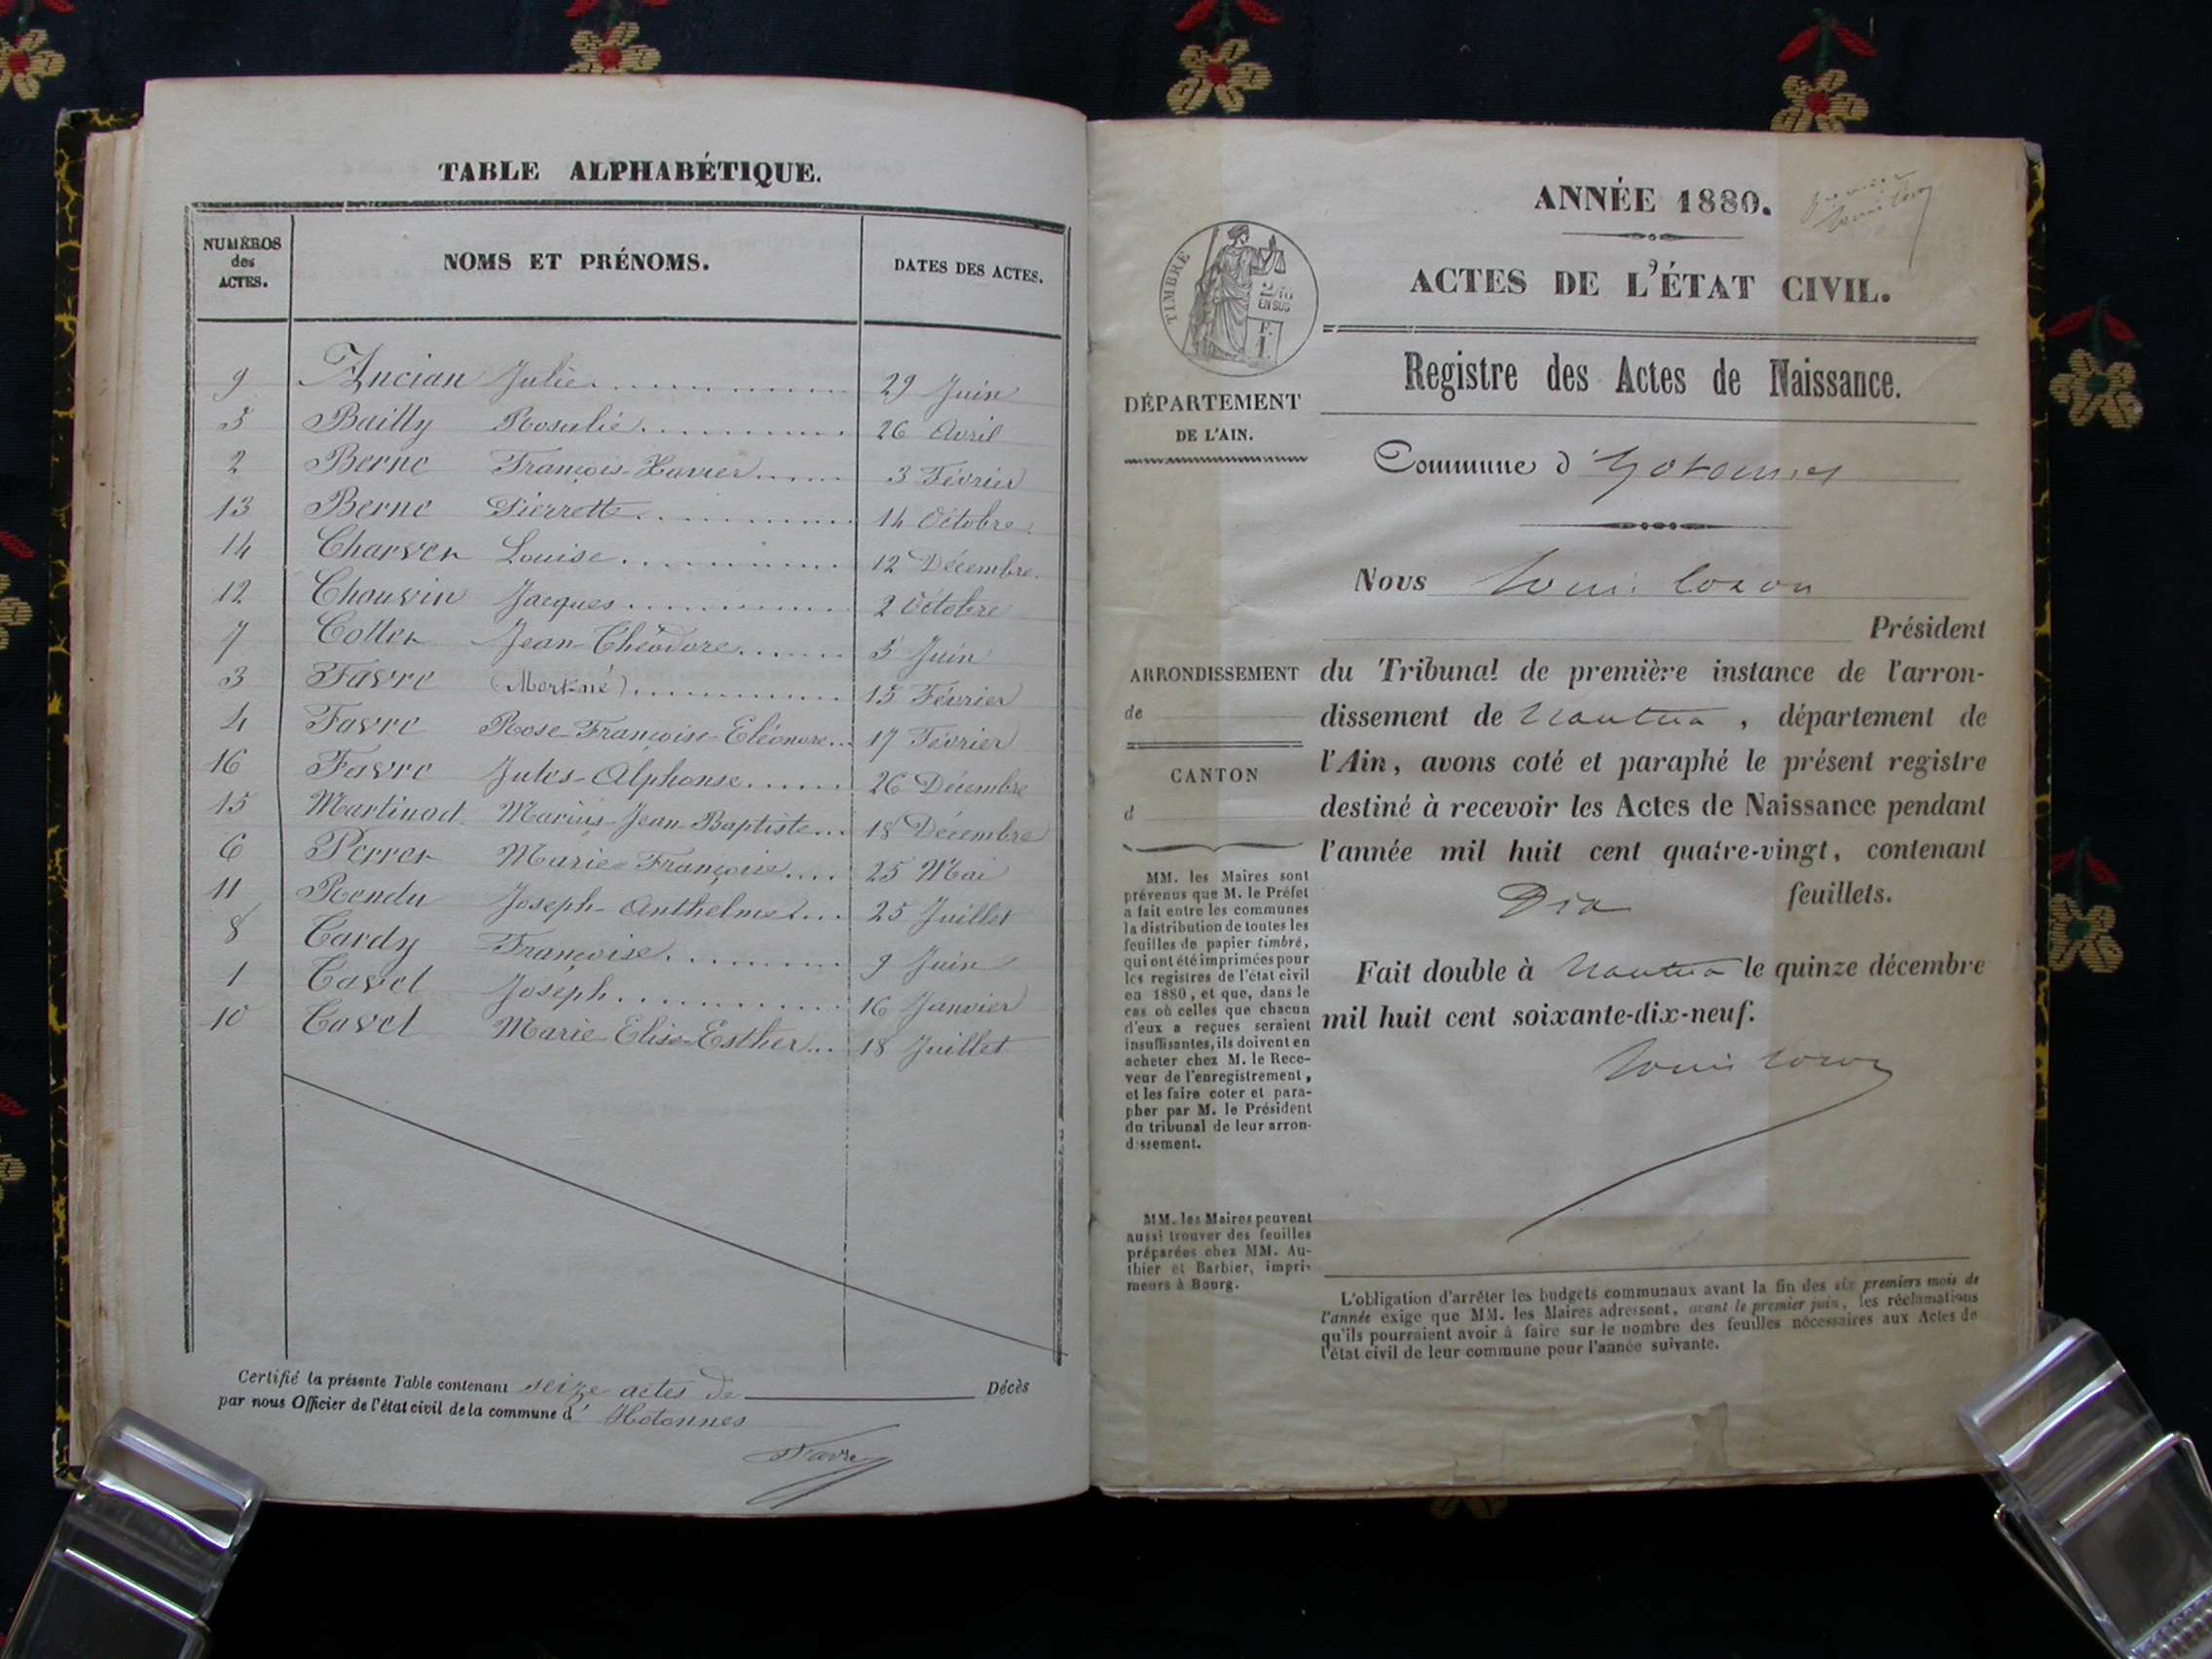 TABLE ALPHABÉTIQUE.
NUMÉROS des ACTES.
NOMS ET PRÉNOMS.
DATES DES ACTES.
9 Ancian Julie 29 Juin
5 Bailly Rosalie 26 Avril
2 Berne François-Xavier 3 Février
13 Berne Pierrette 14 Octobre
14 Charvet Louise 12 Décembre
12 Chauvin Jacques 2 Octobre
7 Collet Jean-Théodore 5 Juin
3 Favre (Mort-né) 15 Février
4 Favre Rose-Françoise-Eléonore 17 Février
16 Favre Jules-Alphonse 26 Décembre
15 Martinod Marius-Jean-Baptiste 18 Décembre
6 Perret Marie-Françoise 25 Mai
11 Rendu Joseph-Anthelme 25 Juillet
8 Tardy Françoise 9 Juin
1 Tavel Joseph 16 Janvier
10 Tavel Marie-Elise-Esther 18 Juillet
Certifié la présente Table contenant seize actes de Décès
par nous Officier de l'état civil de la commune d' Hotonnes
Favre
ANNÉE 1880.
ACTES DE L'ÉTAT CIVIL.
TIMBRE
EN SUS
Registre des Actes de Naissance.
DÉPARTEMENT
DE L'AIN.
Commune d'Hotonnes
Nous Louis Cozon
Président
ARRONDISSEMENT
de
CANTON
d
du Tribunal de première instance de l'arron-
dissement de Nantua, département de
l'Ain, avons coté et paraphé le présent registre
destiné à recevoir les Actes de Naissance pendant
l'année mil huit cent quatre-vingt, contenant
Dix feuillets.
Fait double à Nantua le quinze décembre
mil huit cent soixante-dix-neuf.
Louis Cozon
MM. les Maires sont
prévenus que M. le Préfet
a fait entre les communes
la distribution de toutes les
feuilles de papier timbré,
qui ont été imprimées pour
les registres de l'état civil
en 1880, et que, dans le
cas où celles que chacun
d'eux a reçues seraient
insuffisantes, ils doivent en
acheter chez M. le Rece-
veur de l'enregistrement,
et les faire coter et para-
pher par M. le Président
du tribunal de leur arron-
dissement.
MM. les Maires peuvent
aussi trouver des feuilles
préparées chez MM. Au-
thier et Barbier, impri-
meurs à Bourg.
L'obligation d'arrêter les budgets communaux avant la fin des six premiers mois de
l'année exige que MM. les Maires adressent, avant le premier juin, les réclamations
qu'ils pourraient avoir à faire sur le nombre des feuilles nécessaires aux Actes de
l'état civil de leur commune pour l'année suivante.